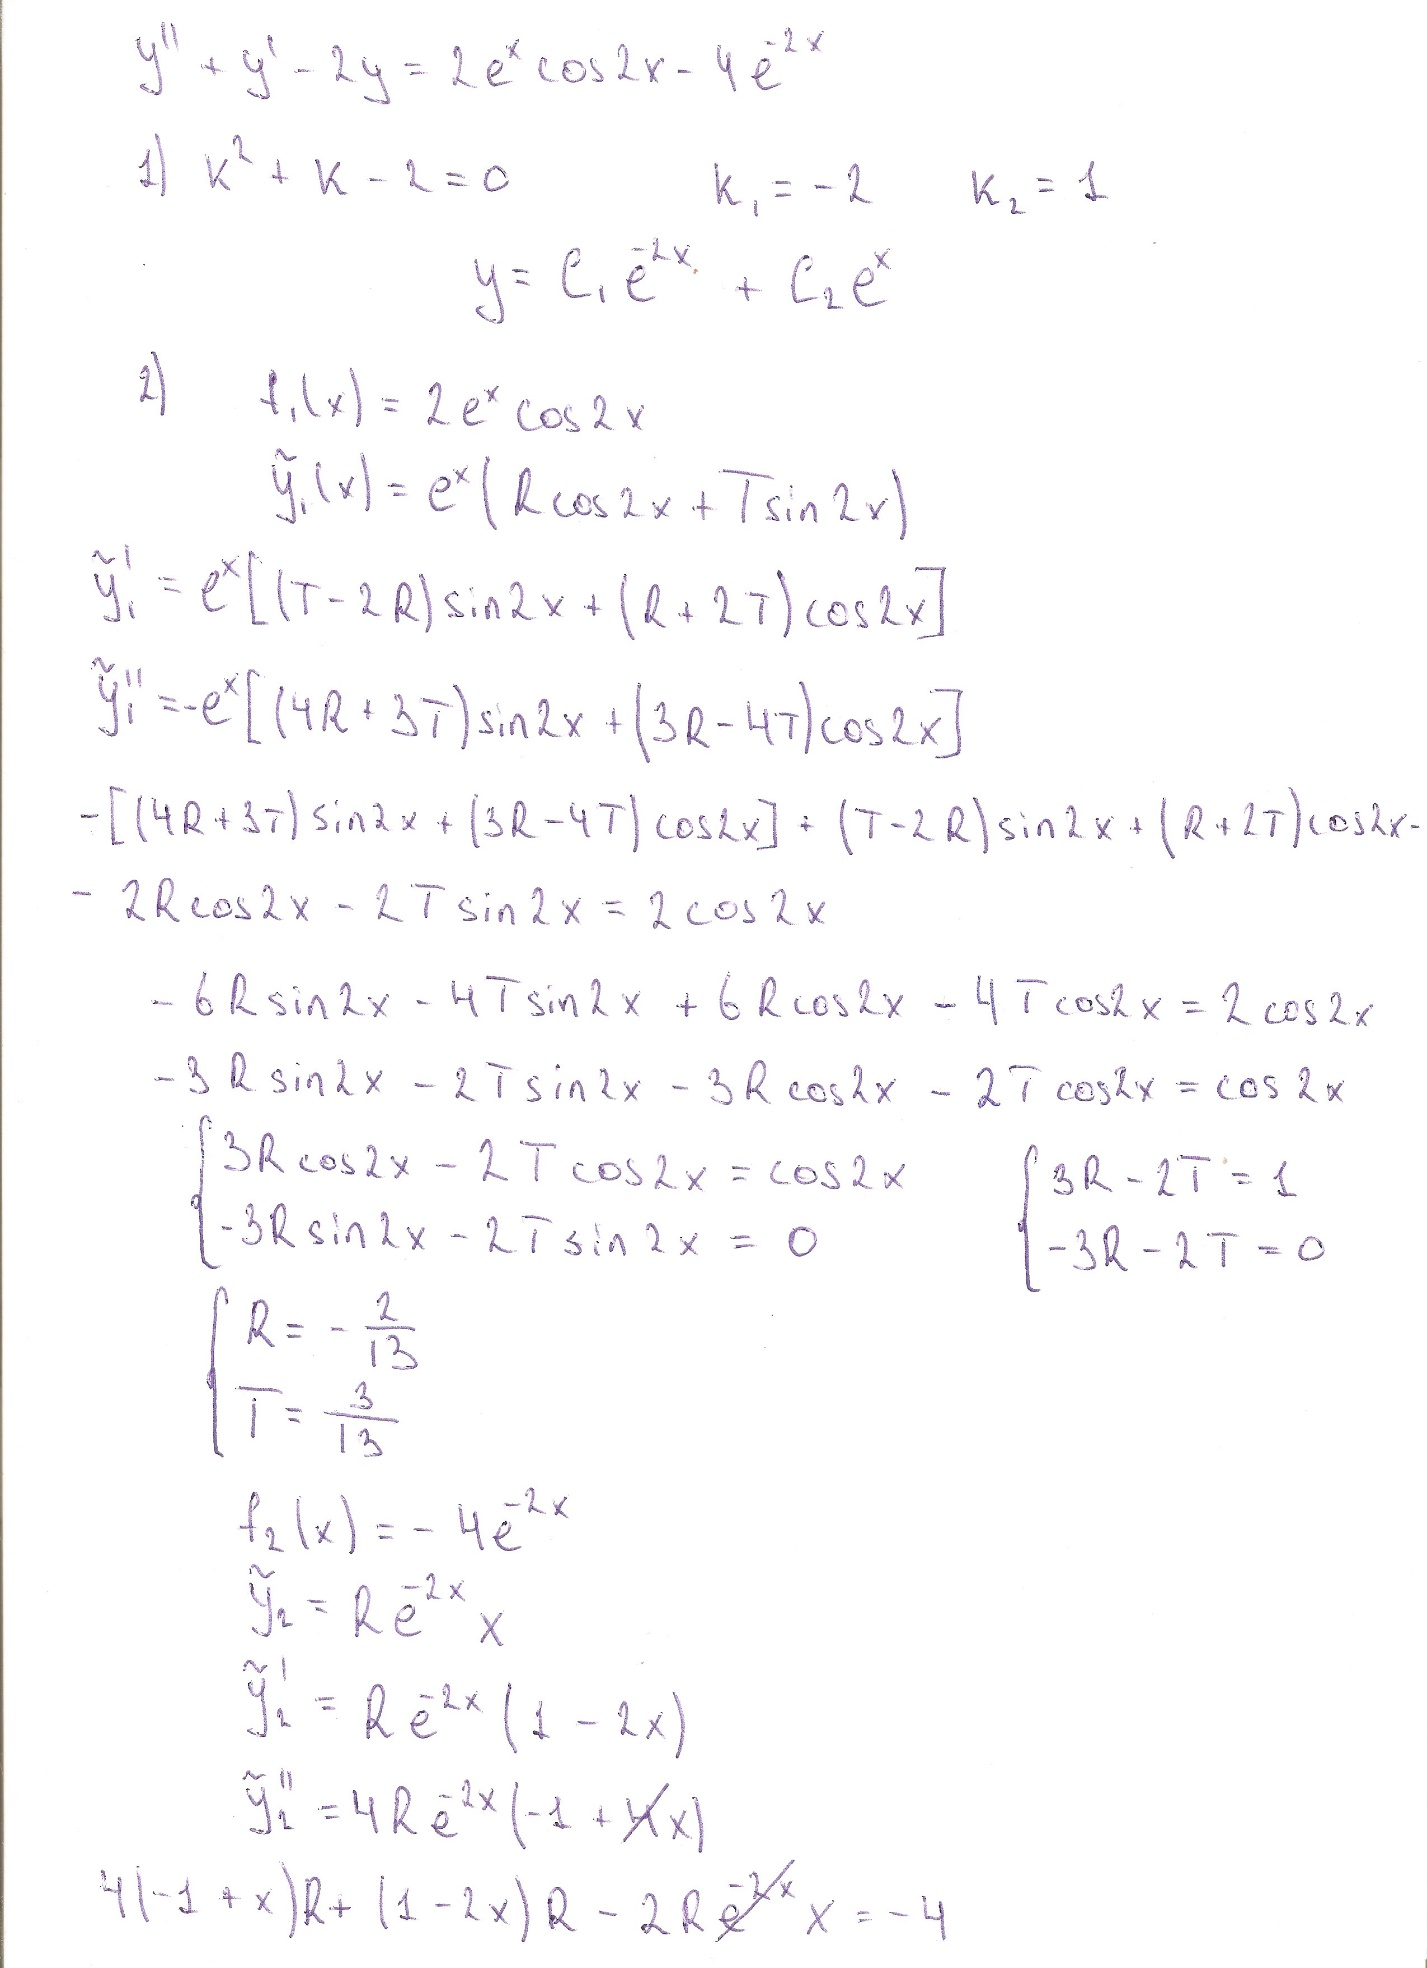 y'' + y' - 2y = 2e^x cos2x - 4e^{-2x}
1) k^2 + k - 2 = 0    k_1 = -2    k_2 = 1
y = C_1 e^{-2x} + C_2 e^x
2) f_1(x) = 2e^x cos2x
ỹ_1(x) = e^x (R cos2x + T sin2x)
ỹ_1' = e^x [(T - 2R) sin2x + (R + 2T) cos2x]
ỹ_1'' = -e^x [(4R + 3T) sin2x + (3R - 4T) cos2x]
-[(4R + 3T) sin2x + (3R - 4T) cos2x] + (T - 2R) sin2x + (R + 2T) cos2x -
- 2R cos2x - 2T sin2x = 2 cos2x
- 6R sin2x - 4T sin2x + 6R cos2x - 4T cos2x = 2 cos2x
- 3R sin2x - 2T sin2x - 3R cos2x - 2T cos2x = cos2x
{ 3R cos2x - 2T cos2x = cos2x    { 3R - 2T = 1
-3R sin2x - 2T sin2x = 0    -3R - 2T = 0
{ R = - 2/13
T = 3/13
f_2(x) = - 4e^{-2x}
ỹ_2 = R e^{-2x} x
ỹ_2' = R e^{-2x} (1 - 2x)
ỹ_2'' = 4R e^{-2x} (-1 + x)
4(-1 + x)R + (1 - 2x)R - 2R e^{-2x} x = -4